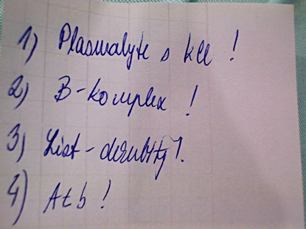 1) Plasmalyte s kCl !
2) B-komplex !
3) List - dekubity !
4) Atb !